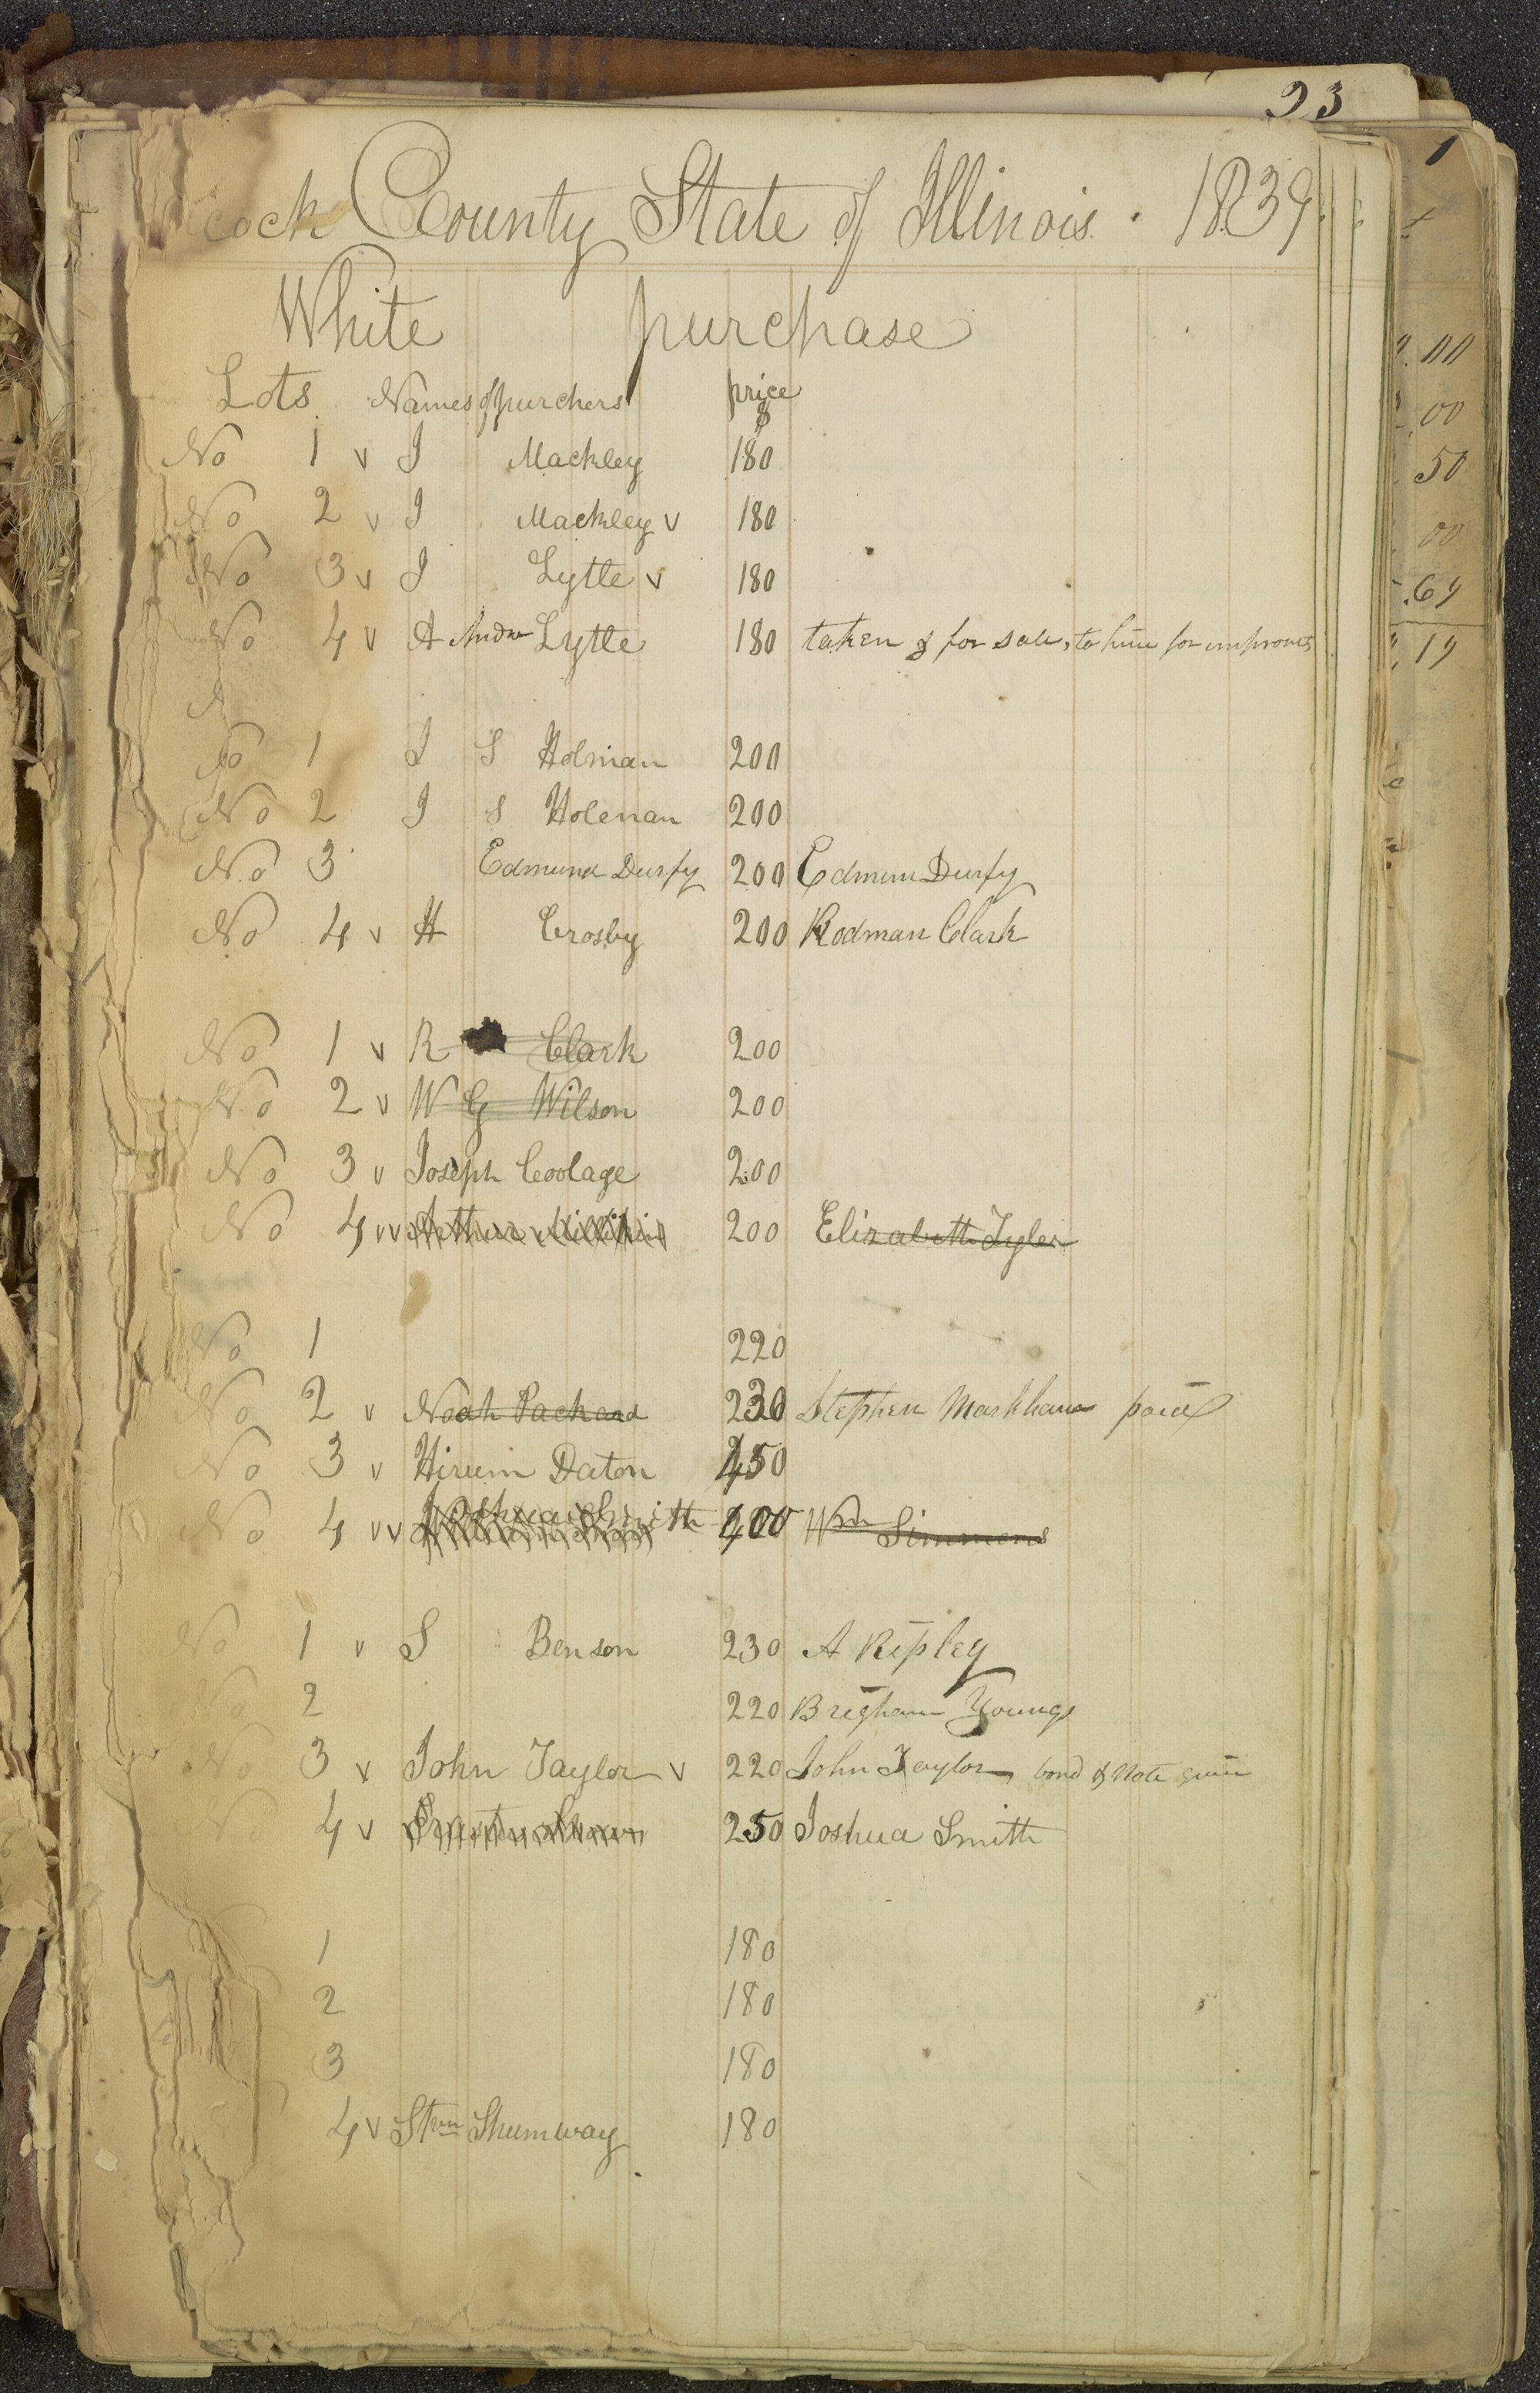 23
cock County State of Illinois. 1839.
White purchase
Lots. Names of purchers price
$
No 1 v J Mackley 180
No 2 v J Mackley v 180
No 3 v J Lytle v 180
No 4 v A Andw Lytle 180 taken & for sale, to him for improvts
No 1 J S Holman 200
No 2 J S Holeman 200
No 3 Edmund Durfy 200 Edmun Durfy
No 4 v H Crosby 200 Rodman Clark
No 1 v R Clark 200
No 2 v W G Wilson 200
No 3 v Joseph Coolage 200
No 4 vv Arthur Millikin 200 Elizabeth Tyler
No 1 220
No 2 v Noah Packard 230 Stephen Markham paid
No 3 v Hirum Daton 450
No 4 vv Joshua Smith 400 Wm Simmens
No 1 v S Benson 230 A Ripley
No 2 220 Brigham Young
No 3 v John Taylor v 220 John Taylor bond & Note given
No 4 v 250 Joshua Smith
1 180
2 180
3 180
4 v Stn Shumway 180
1
00
00
50
00
.69
19